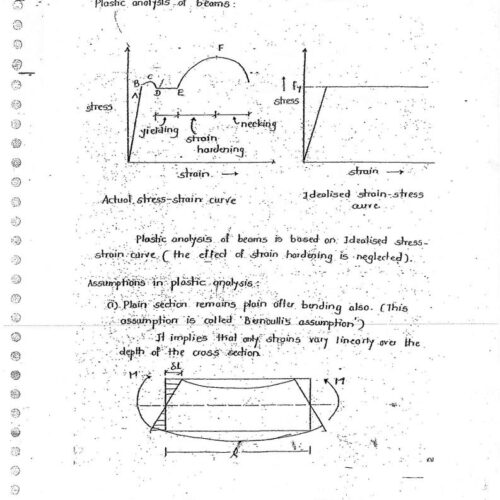 Plastic analysis of beams:
F
C
B
A
D
E
stress
yielding
strain
hardening
necking
strain →
fy
stress
strain →
Actual stress-strain curve
Idealised strain-stress
curve
Plastic analysis of beams is based on Idealised stress-
strain curve ( the effect of strain hardening is neglected).
Assumptions in plastic analysis:
(i) Plain section remains plain after bending also. (This
assumption is called 'Bernoulli's assumption')
It implies that only strains vary linearly over the
depth of the cross section
δL
M
M
l